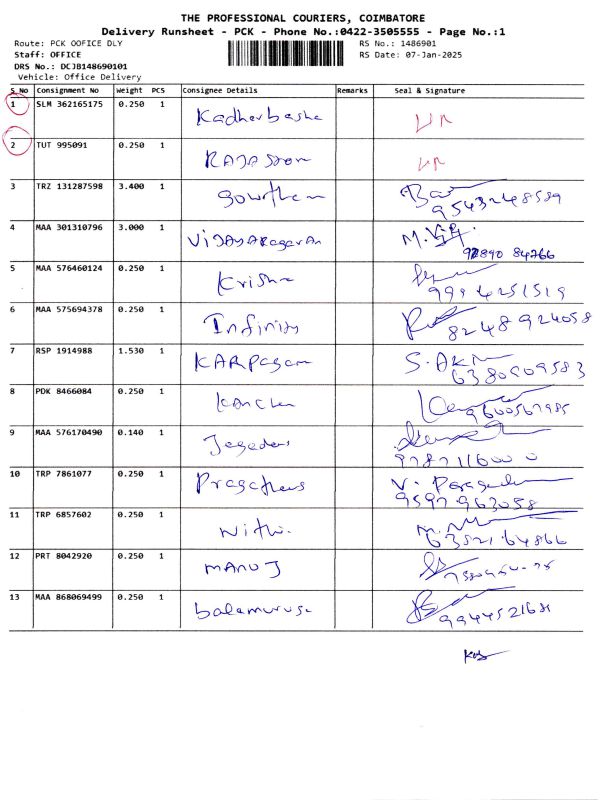 THE PROFESSIONAL COURIERS, COIMBATORE
Delivery Runsheet - PCK - Phone No.:0422-3505555 - Page No.:1
Route: PCK OOFICE DLY RS No.: 1486901
Staff: OFFICE RS Date: 07-Jan-2025
DRS No.: DCJB148690101
Vehicle: Office Delivery
S_No Consignment No Weight PCS Consignee Details Remarks Seal & Signature
1 SLM 362165175 0.250 1 Kadharbasha
2 TUT 995091 0.250 1
3 TRZ 131287598 3.400 1 Gowtham 9543248589
4 MAA 301310796 3.000 1 VIJAYARAGAVAN 92890 84766
5 MAA 576460124 0.250 1 Krisha 9994251519
6 MAA 575694378 0.250 1 Infinity 8248924058
7 RSP 1914988 1.530 1 KARPagam 6380909583
8 PDK 8466084 0.250 1 9600567985
9 MAA 576170490 0.140 1
10 TRP 7861077 0.250 1 9597963058
11 TRP 6857602 0.250 1 Nithi
12 PRT 8042920 0.250 1 MANOJ
13 MAA 868069499 0.250 1 balamuruga